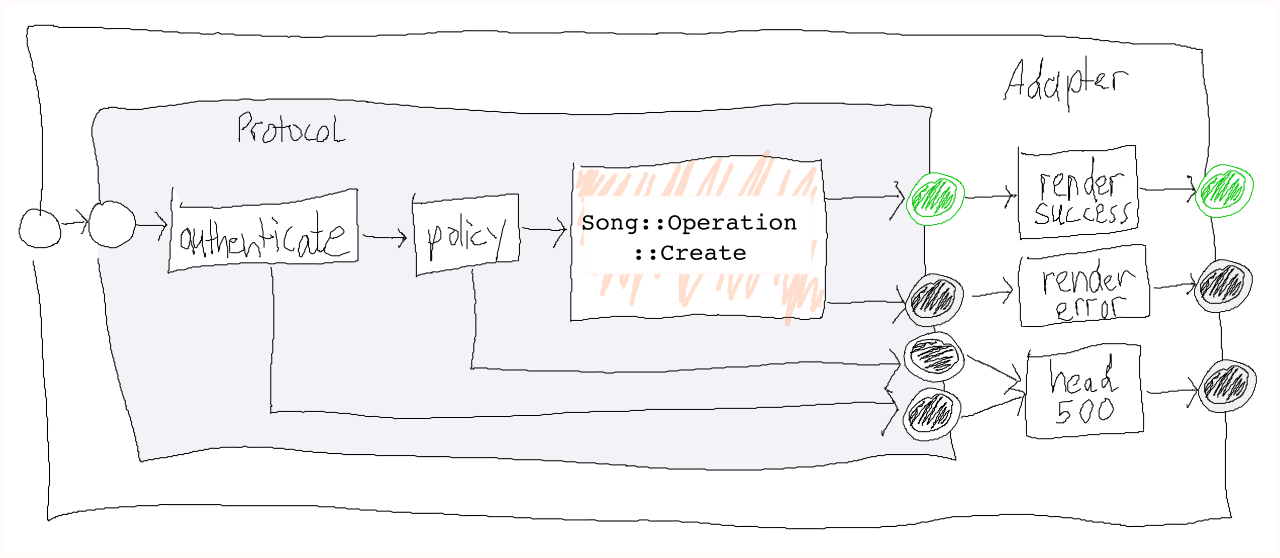 Adapter
Protocol
authenticate
policy
Song::Operation
::Create
render
success
render
error
head
500